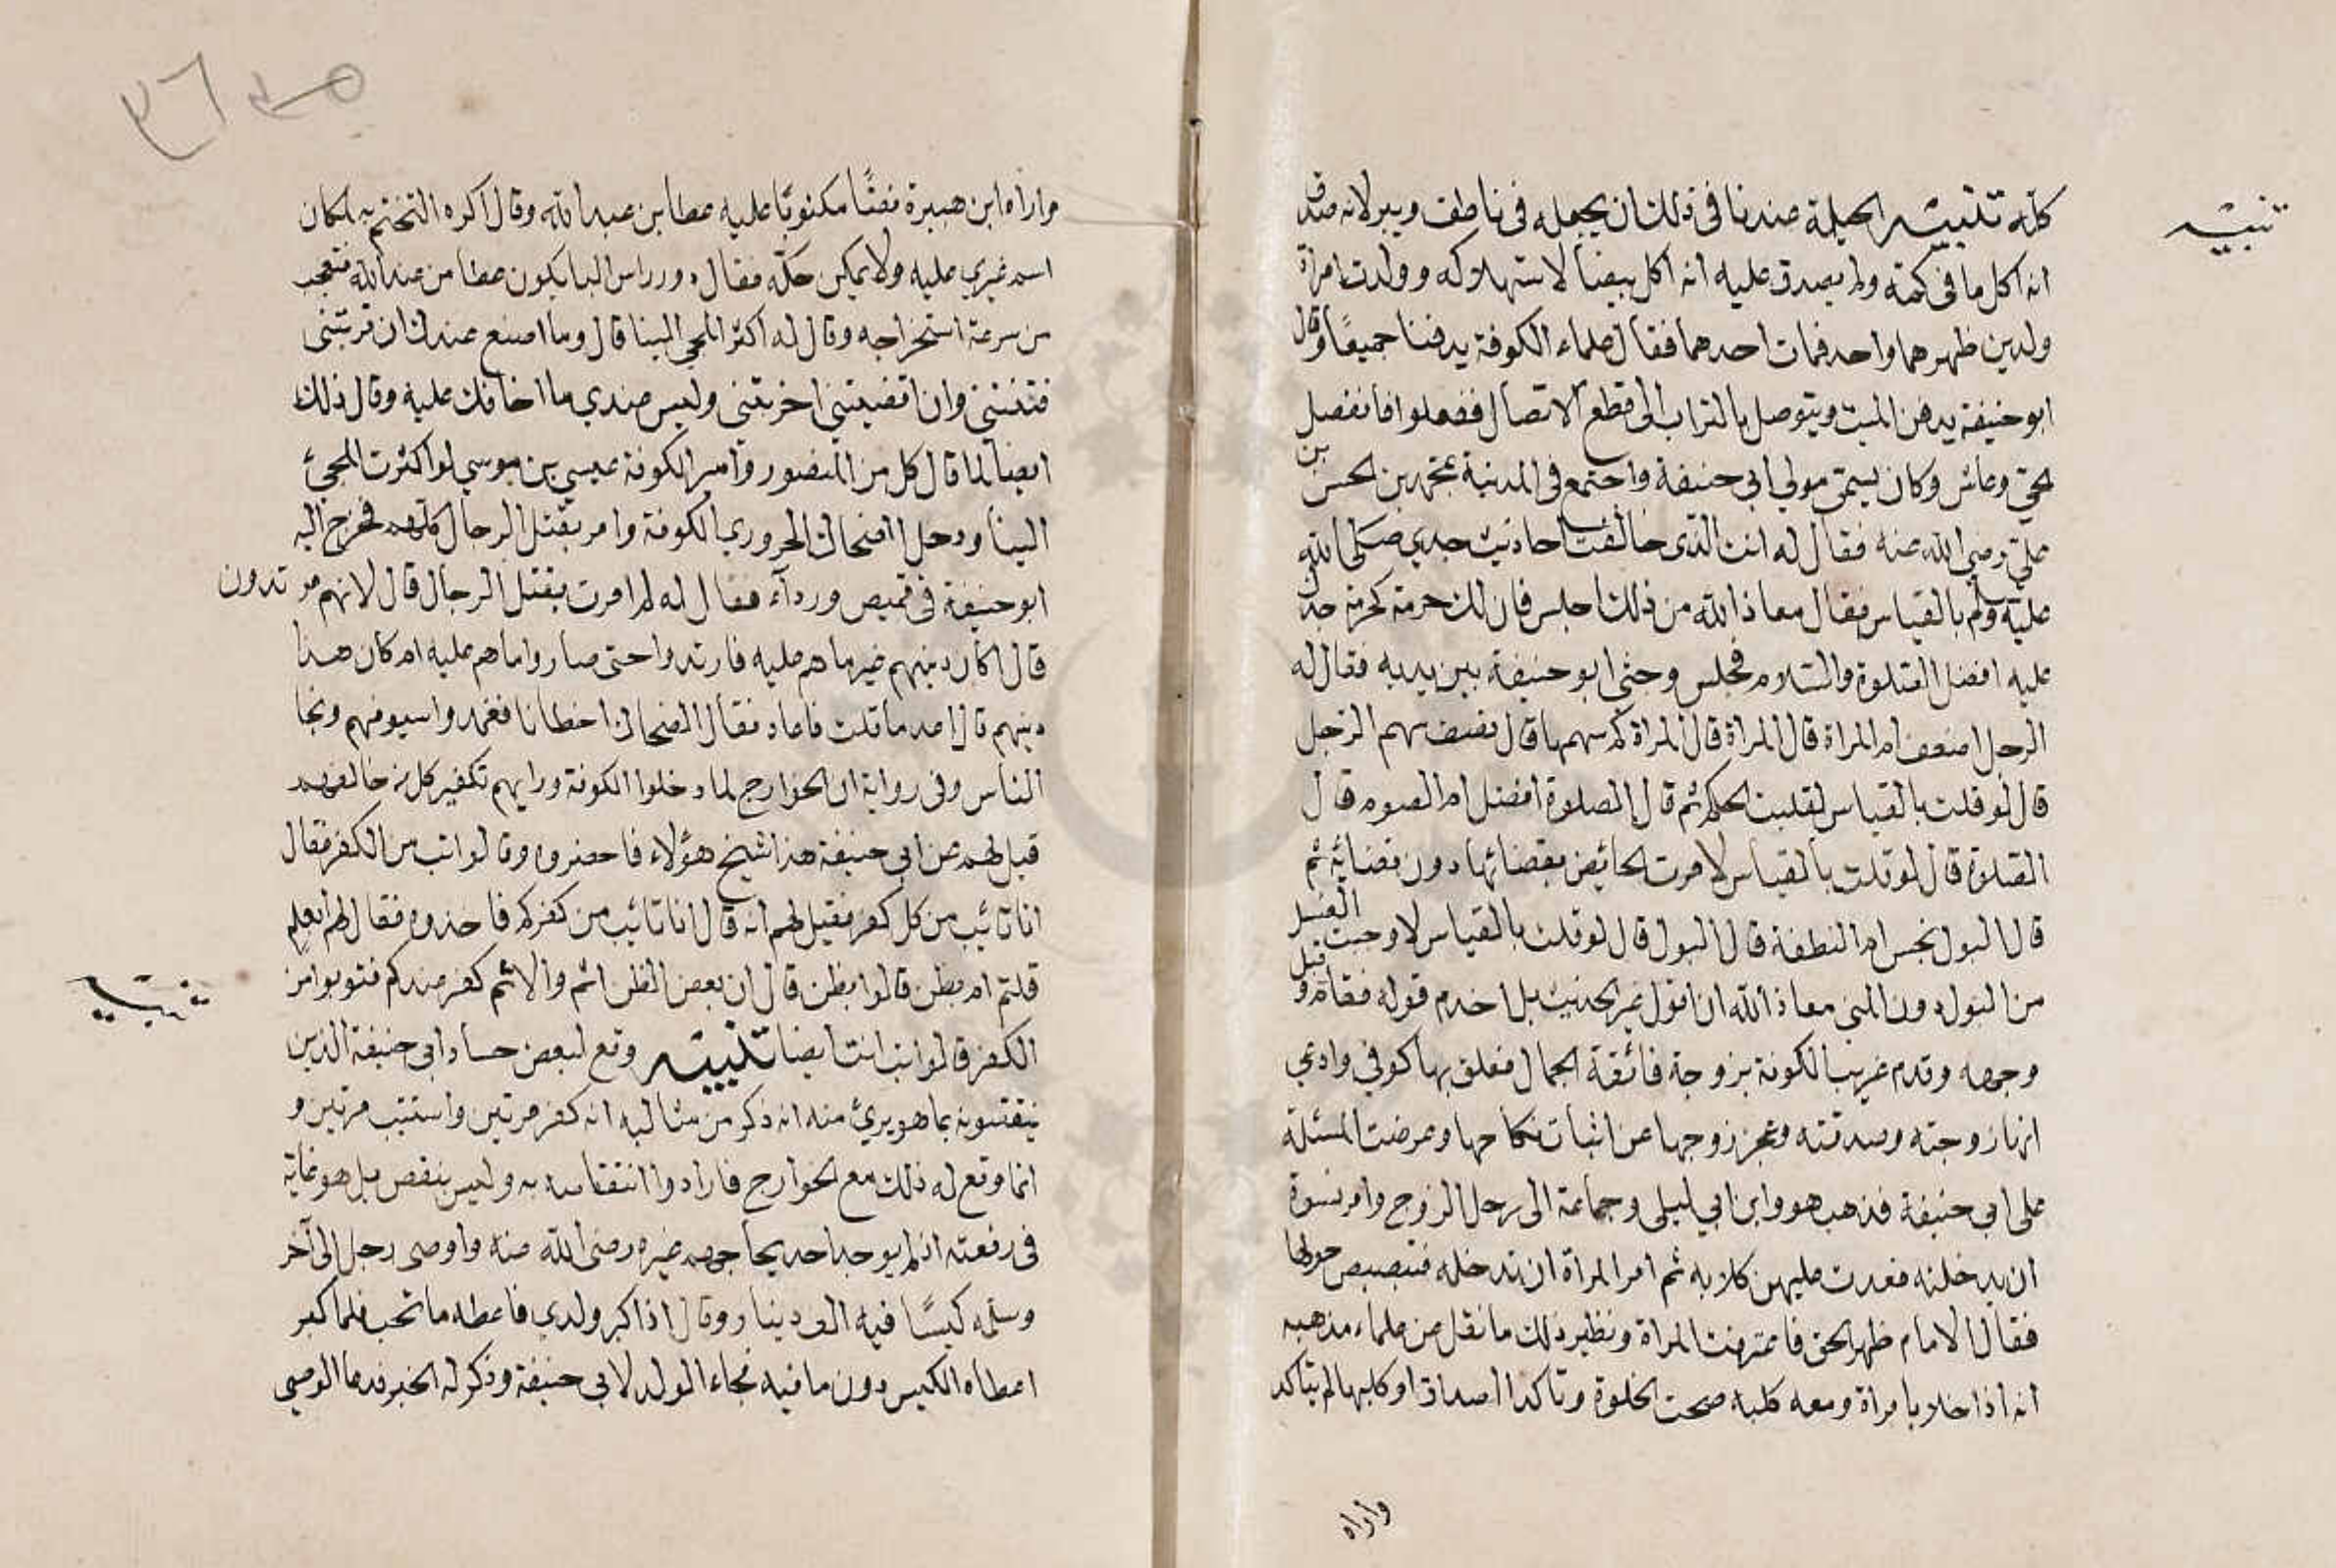 تنبيه
كله تنبيه الحيلة عندنا في ذلك ان يجعله في ناطف ويبر لانه صدق
انه اكل ما في كمه ولم يصدق عليه انه اكل بيضا لاستهلاكه وولدت امراة
ولدين ظهرهما واحد فمات احدهما فقال علماء الكوفة يدفنا جميعًا وقال
ابو حنيفة يدفن الميت ويتوصل بالتراب الى قطع الاتصال ففعلوا فانفصل
الحي وعاش وكان يسمى مولى ابي حنيفة واجتمع في المدينة بمحمد بن الحسن بن
علي رضي الله عنه فقال له انت الذي خالفت احاديث جدي صلى الله
عليه وسلم بالقياس فقال معاذ الله من ذلك اجلس فان لك حرمة كحرمة جدك
عليه افضل الصلوة والسلام فجلس وجثى ابو حنيفة بين يديه فقال له
الرجل اضعف ام المراة قال المراة قال المراة كم سهمها قال نصف سهم الرجل
قال لو قلت بالقياس لقلبت الحكم ثم قال الصلوة افضل ام الصوم قال
الصلوة قال لو قلت بالقياس لامرت الحائض بقضائها دون قضائه ثم
قال البول نجس ام النطفة قال البول قال لو قلت بالقياس لاوجبت الغسل
من البول دون المني معاذ الله ان اقول غير الحديث بل اخدم قوله فقام وقبل
وجهه وقدم غريب الكوفة بزوجة فائقة الجمال فعلق بها كوفي وادعي
انها زوجته وصدقته وعجز زوجها عن اثبات نكاحها وعرضت المسئلة
على ابي حنيفة فذهب هو وابن ابي ليلى وجماعة الى رحل الزوج وامر نسوة
ان يدخلنه فعدت عليهن كلابه ثم امر المراة ان تدخله فتبصبص حولها
فقال الامام ظهر الحق فاعترفت المراة ونظير ذلك ما نقل عن علماء مذهبه
انه اذا خلا بامراة ومعه كلبه صحت الخلوة وتاكد الصداق او كلبها لم يتاكد
واراه
واراه ابن هبيرة فصًا مكتوبًا عليه عطا بن عبد الله وقال اكره التختم به لمكان
اسم غيري عليه ولا يمكن حكه فقال دور راس البا يكون عطا من عند الله فتعجب
من سرعة استخراجه وقال له اكثر المجي الينا قال وما اصنع عندك ان قربتني
فتنتني وان اقصيتني اخزيتني وليس عندي ما اخافك عليه وقال ذلك
ايضا لما قال كل من المنصور وامير الكوفة عيسي بن موسي لو اكثرت المجئ
الينا ودخل الضحاك الحروري الكوفة وامر بقتل الرجال كلهم فخرج اليه
ابو حنيفة في قميص وردآء فقال له لم امرت بقتل الرجال قال لانهم مرتدون
قال اكان دينهم غير ما هم عليه فارتدوا حتى صاروا ما هم عليه ام كان هذا
دينهم قال اعد ما قلت فاعاد فقال الضحاك اخطانا فغمدوا سيوفهم ونجا
الناس وفي رواية ان الخوارج لما دخلوا الكوفة ورايهم تكفير كل من خالفهم
قيل لهم عن ابي حنيفة هذا شيخ هؤلاء فاحضروه وقالوا تب من الكفر فقال
انا تائب من كل كفر فقيل لهم انه قال انا تائب من كفركم فاخذوه فقال لهم ابعلم
قلتم ام بظن قالوا بظن قال ان بعض الظن اثم والاثم كفر عندكم فتوبوا من
الكفر قالوا تب انت ايضا تنبيه وقع لبعض حساد ابي حنيفة الذين
ينقصونه بما هو بريء منه انه ذكر من مثالبه انه كفر مرتين واستتيب مرتين و
انما وقع له ذلك مع الخوارج فارادوا انتقاصه به وليس بنقص بل هو غاية
في رفعته اذ لم يوجد احد يحاججهم غيره رضى الله عنه واوصى رجل الى آخر
وسلمه كيسًا فيه الف دينار وقال اذا كبر ولدي فاعطه ما تحب فلما كبر
اعطاه الكيس دون ما فيه فجاء الولد لابي حنيفة وذكر له الخبر فدعا الوصي
تنبيه